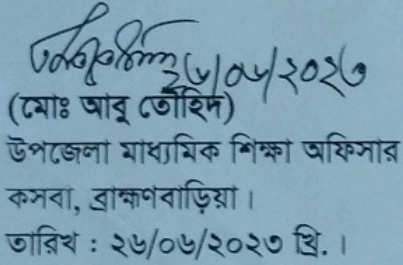 ২৬/০৬/২০২৩
(মোঃ আবু তৌহিদ)
উপজেলা মাধ্যমিক শিক্ষা অফিসার
কসবা, ব্রাহ্মণবাড়িয়া।
তারিখ : ২৬/০৬/২০২৩ খ্রি. ।